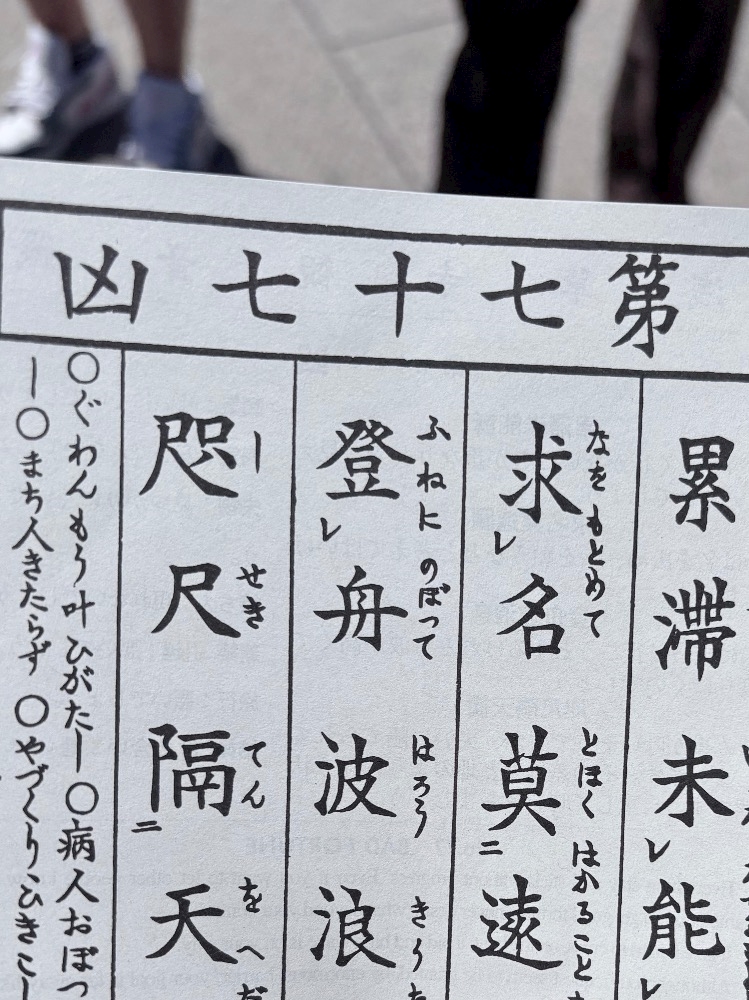 第七十七凶
累滞未能
なをもとめて とほくはかること
求名莫遠
ふねにのぼって はろう きうた
登舟波浪
ー せき てん をへだ
咫尺隔天
〇ぐわんもう叶ひがたー〇病人おぼつ
ー〇まち人きたらず〇やづくりひきこし